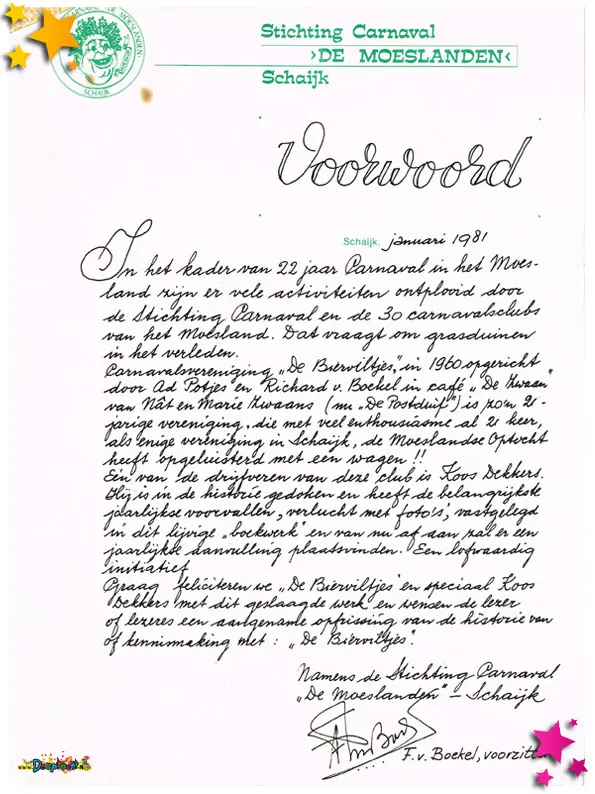 Stichting Carnaval
›DE MOESLANDEN‹
Schaijk
SCHAIJK
Voorwoord
Schaijk, januari 1981
In het kader van 22 jaar Carnaval in het Moes-
land zijn er vele activiteiten ontplooid door
de Stichting Carnaval en de 30 carnavalsclubs
van het Moesland. Dat vraagt om grasduinen
in het verleden.
Carnavalsvereniging „De Bierviltjes", in 1960 opgericht
door Ad Potjes en Richard v. Boekel in café „De Zwaan"
van Nât en Marie Zwaans (nu „De Postduif") is zo'n 21-
jarige vereniging, die met veel enthousiasme al 21 keer,
als enige vereniging in Schaijk, de Moeslandse Optocht
heeft opgeluisterd met een wagen !!
Eén van de drijfveren van deze club is Koos Dekkers.
Hij is in de historie gedoken en heeft de belangrijkste
jaarlijkse voorvallen, verlucht met foto's, vastgelegd
in dit lijvige „boekwerk" en van nu af aan zal er een
jaarlijkse aanvulling plaatsvinden. Een lofwaardig
initiatief
Graag feliciteren we „De Bierviltjes" en speciaal Koos
Dekkers met dit geslaagde werk en wensen de lezer
of lezeres een aangename opfrissing van de historie van
of kennismaking met : „De Bierviltjes".
Namens de Stichting Carnaval
„De Moeslanden" – Schaijk
F. v. Boekel, voorzitter